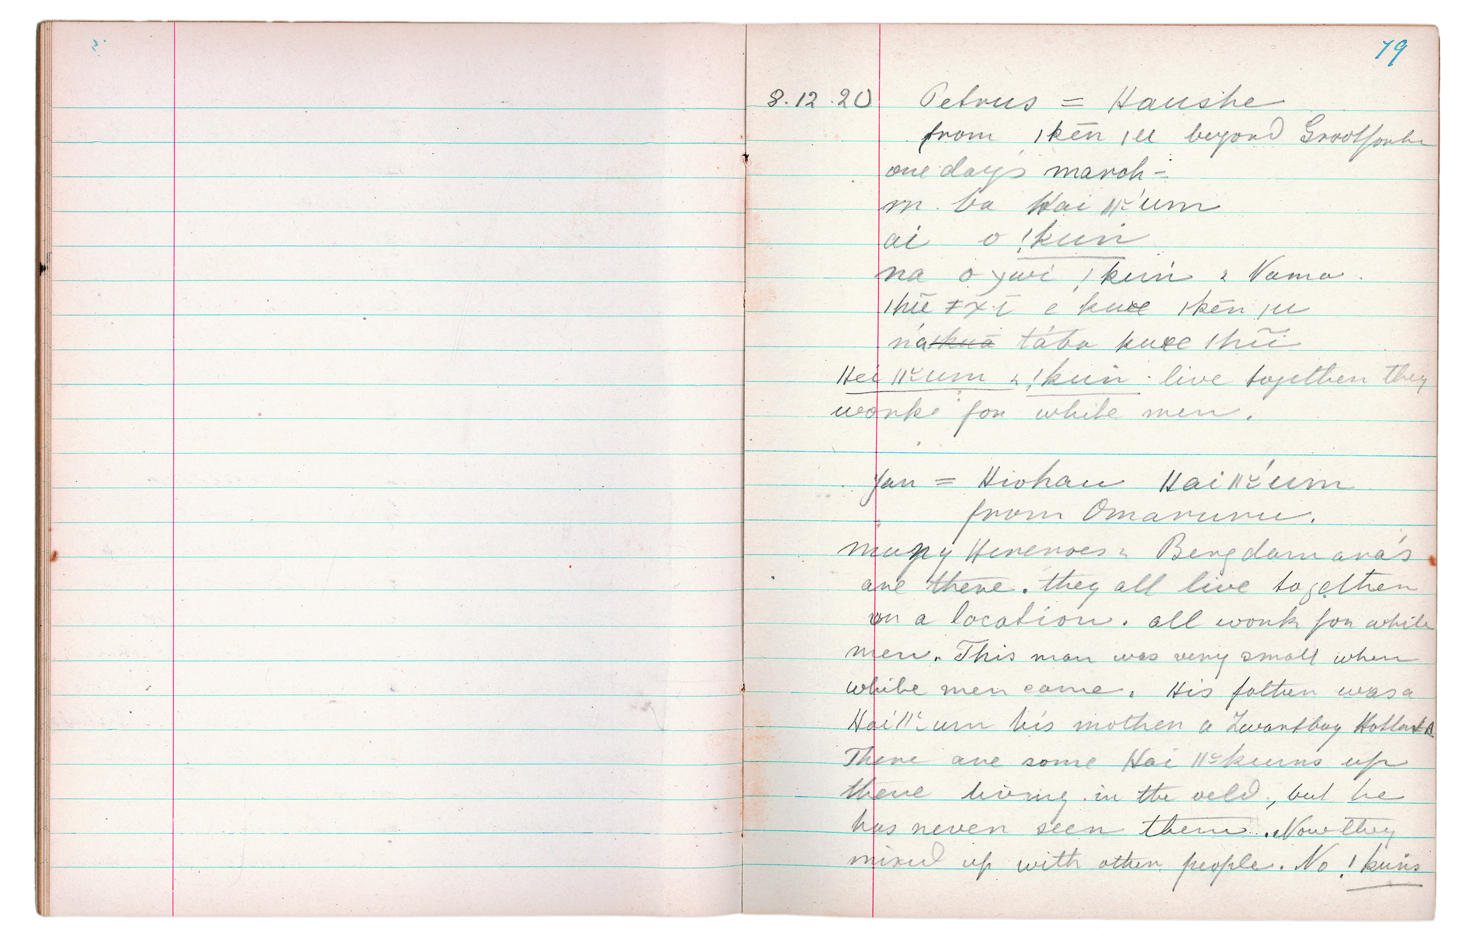 79
8.12.20 Petrus = Haushe
from ǀkēn ǀu beyond Grootfontn
one day's march -
m ba Hai ǁʿum
ai o !kuń
na o !kuń & Nama.
ǀhū ǂxī e kuxe ǀkēn ǀu
ná tába kuxe ǀhūī
Hei ǁʿum & !kuń live together they
work for white men.
Jan = Hiohau Hai ǁʿum
from Omaruru.
many Hereroes & Bergdamara's
are there. they all live together
on a location. all work for white
men. This man was very small when
white men came. His father was a
Hai ǁʿum his mother a Zwartboy
There are some Hai ǁʿkums up
there living in the veld, but he
has never seen them. Now they
mixed up with other people. No !kuńs